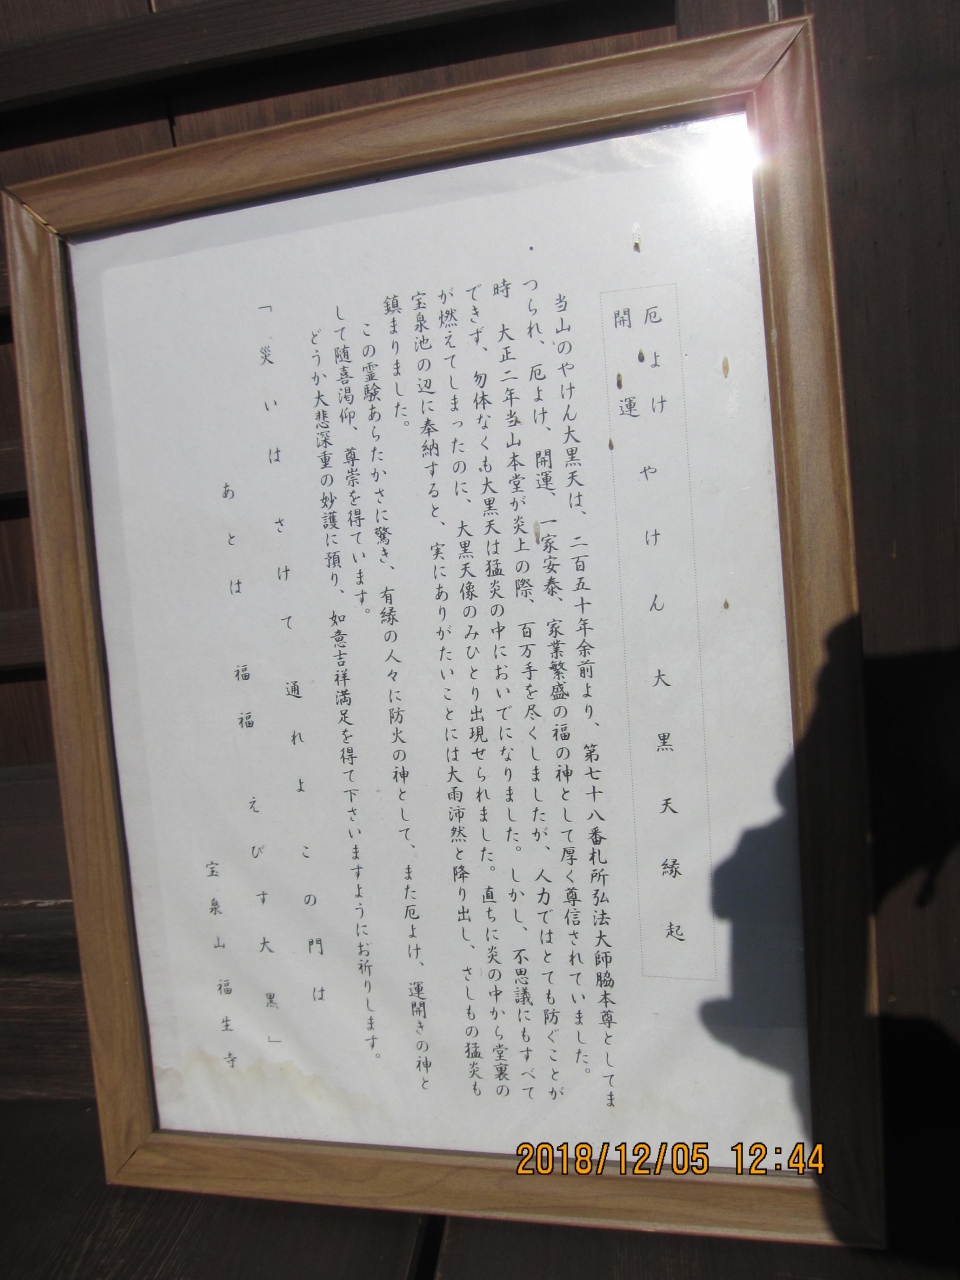 厄よけ
開運
やけん大黒天縁起
当山のやけん大黒天は、二百五十年余前より、第七十八番札所弘法大師脇本尊としてま
つられ、厄よけ、開運、一家安泰、家業繁盛の福の神として厚く尊信されていました。
時 大正二年当山本堂が炎上の際、百万手を尽くしましたが、人力ではとても防ぐことが
できず、勿体なくも大黒天は猛炎の中においでになりました。しかし、不思議にもすべて
が燃えてしまったのに、大黒天像のみひとり出現せられました。直ちに炎の中から堂裏の
宝泉池の辺に奉納すると、実にありがたいことには大雨沛然と降り出し、さしもの猛炎も
鎮まりました。
この霊験あらたかさに驚き、有縁の人々に防火の神として、また厄よけ、運開きの神と
して随喜渇仰、尊崇を得ています。
どうか大悲深重の妙護に預り、如意吉祥満足を得て下さいますようにお祈りします。
「災いは さけて通れよ この門は
あとは 福福 えびす大黒」
宝泉山福生寺
2018/12/05 12:44